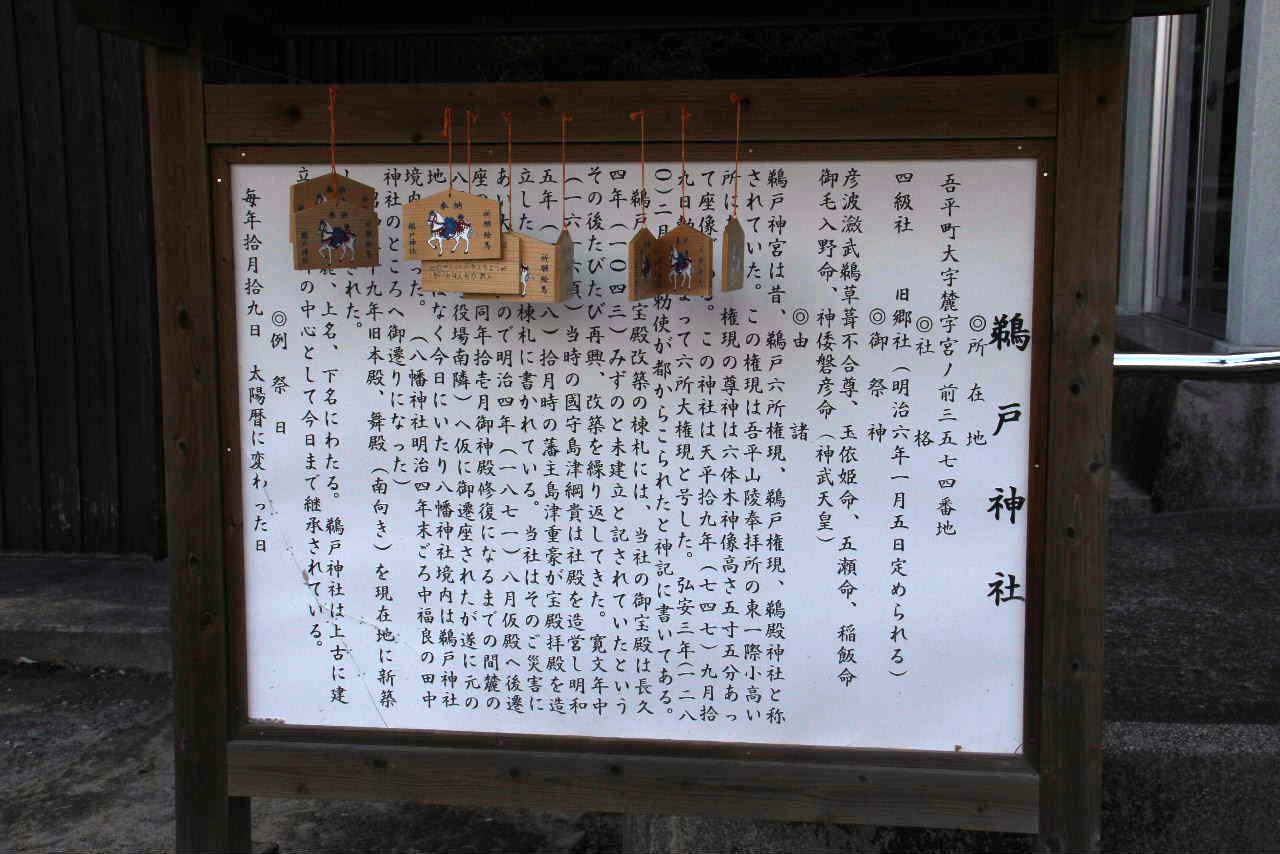 鵜戸神社
◎所在地
吾平町大字麓字宮ノ前三五七四番地
◎社格
四級社 旧郷社（明治六年一月五日定められる）
◎御祭神
彦波瀲武鵜草葺不合尊、玉依姫命、五瀬命、稲飯命
御毛入野命、神倭磐彦命（神武天皇）
◎由諸
鵜戸神宮は昔、鵜戸六所権現、鵜戸権現、鵜殿神社と称
されていた。この権現は吾平山陵奉拝所の東一際小高い
所に 権現の尊神は六体木神像高さ五寸五分あっ
て座像 。この神社は天平拾九年（七四七）九月拾
九日 まって六所大権現と号した。弘安三年（一二八
〇）二月 勅使が都からこられたと神記に書いてある。
鵜戸 宝殿改築の棟札には、当社の御宝殿は長久
四年（一〇四三）みずのと未建立と記されていたという
その後たびたび再興、改築を繰り返してきた。寛文年中
（一六 頃）当時の國守島津綱貴は社殿を造営し明和
五年（ 八）拾月時の藩主島津重豪が宝殿拝殿を造
立した 棟札に書かれている。当社はそのご災害に
あい ので明治四年（一八七一）八月仮殿へ後遷
座の 同年拾壱月御神殿修復になるまでの間麓の
八 役場南隣）へ仮に御遷座されたが遂に元の
地 はなく今日にいたり八幡神社境内は鵜戸神社
境内 った。（八幡神社明治四年末ごろ中福良の田中
神社のところへ御遷りになった）
十九年旧本殿、舞殿（南向き）を現在地に新築
された。
、上名、下名にわたる。鵜戸神社は上古に建
立 の中心として今日まで継承されている。
◎例祭日
毎年拾月拾九日 太陽暦に変わった日
奉納
祈願絵馬
鵜戸神社
祈願絵馬